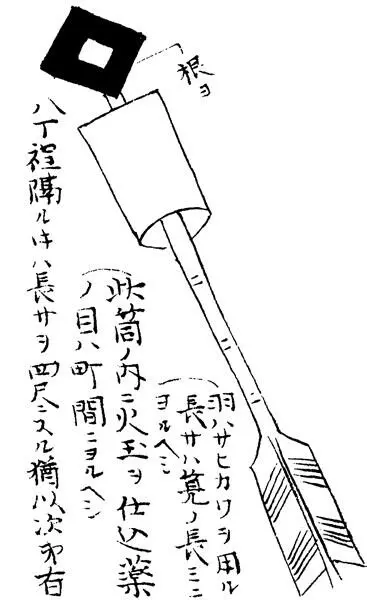 根ヲ
羽ハサヒカワヲ用ル
長サハ筧ノ長ミニ
ヨルヘシ
此筒ノ内ニ火玉ヲ仕込薬
ノ目ハ町間ニヨルヘシ
八丁程隔ルキハ長サヲ四尺ニスル猶以次第有